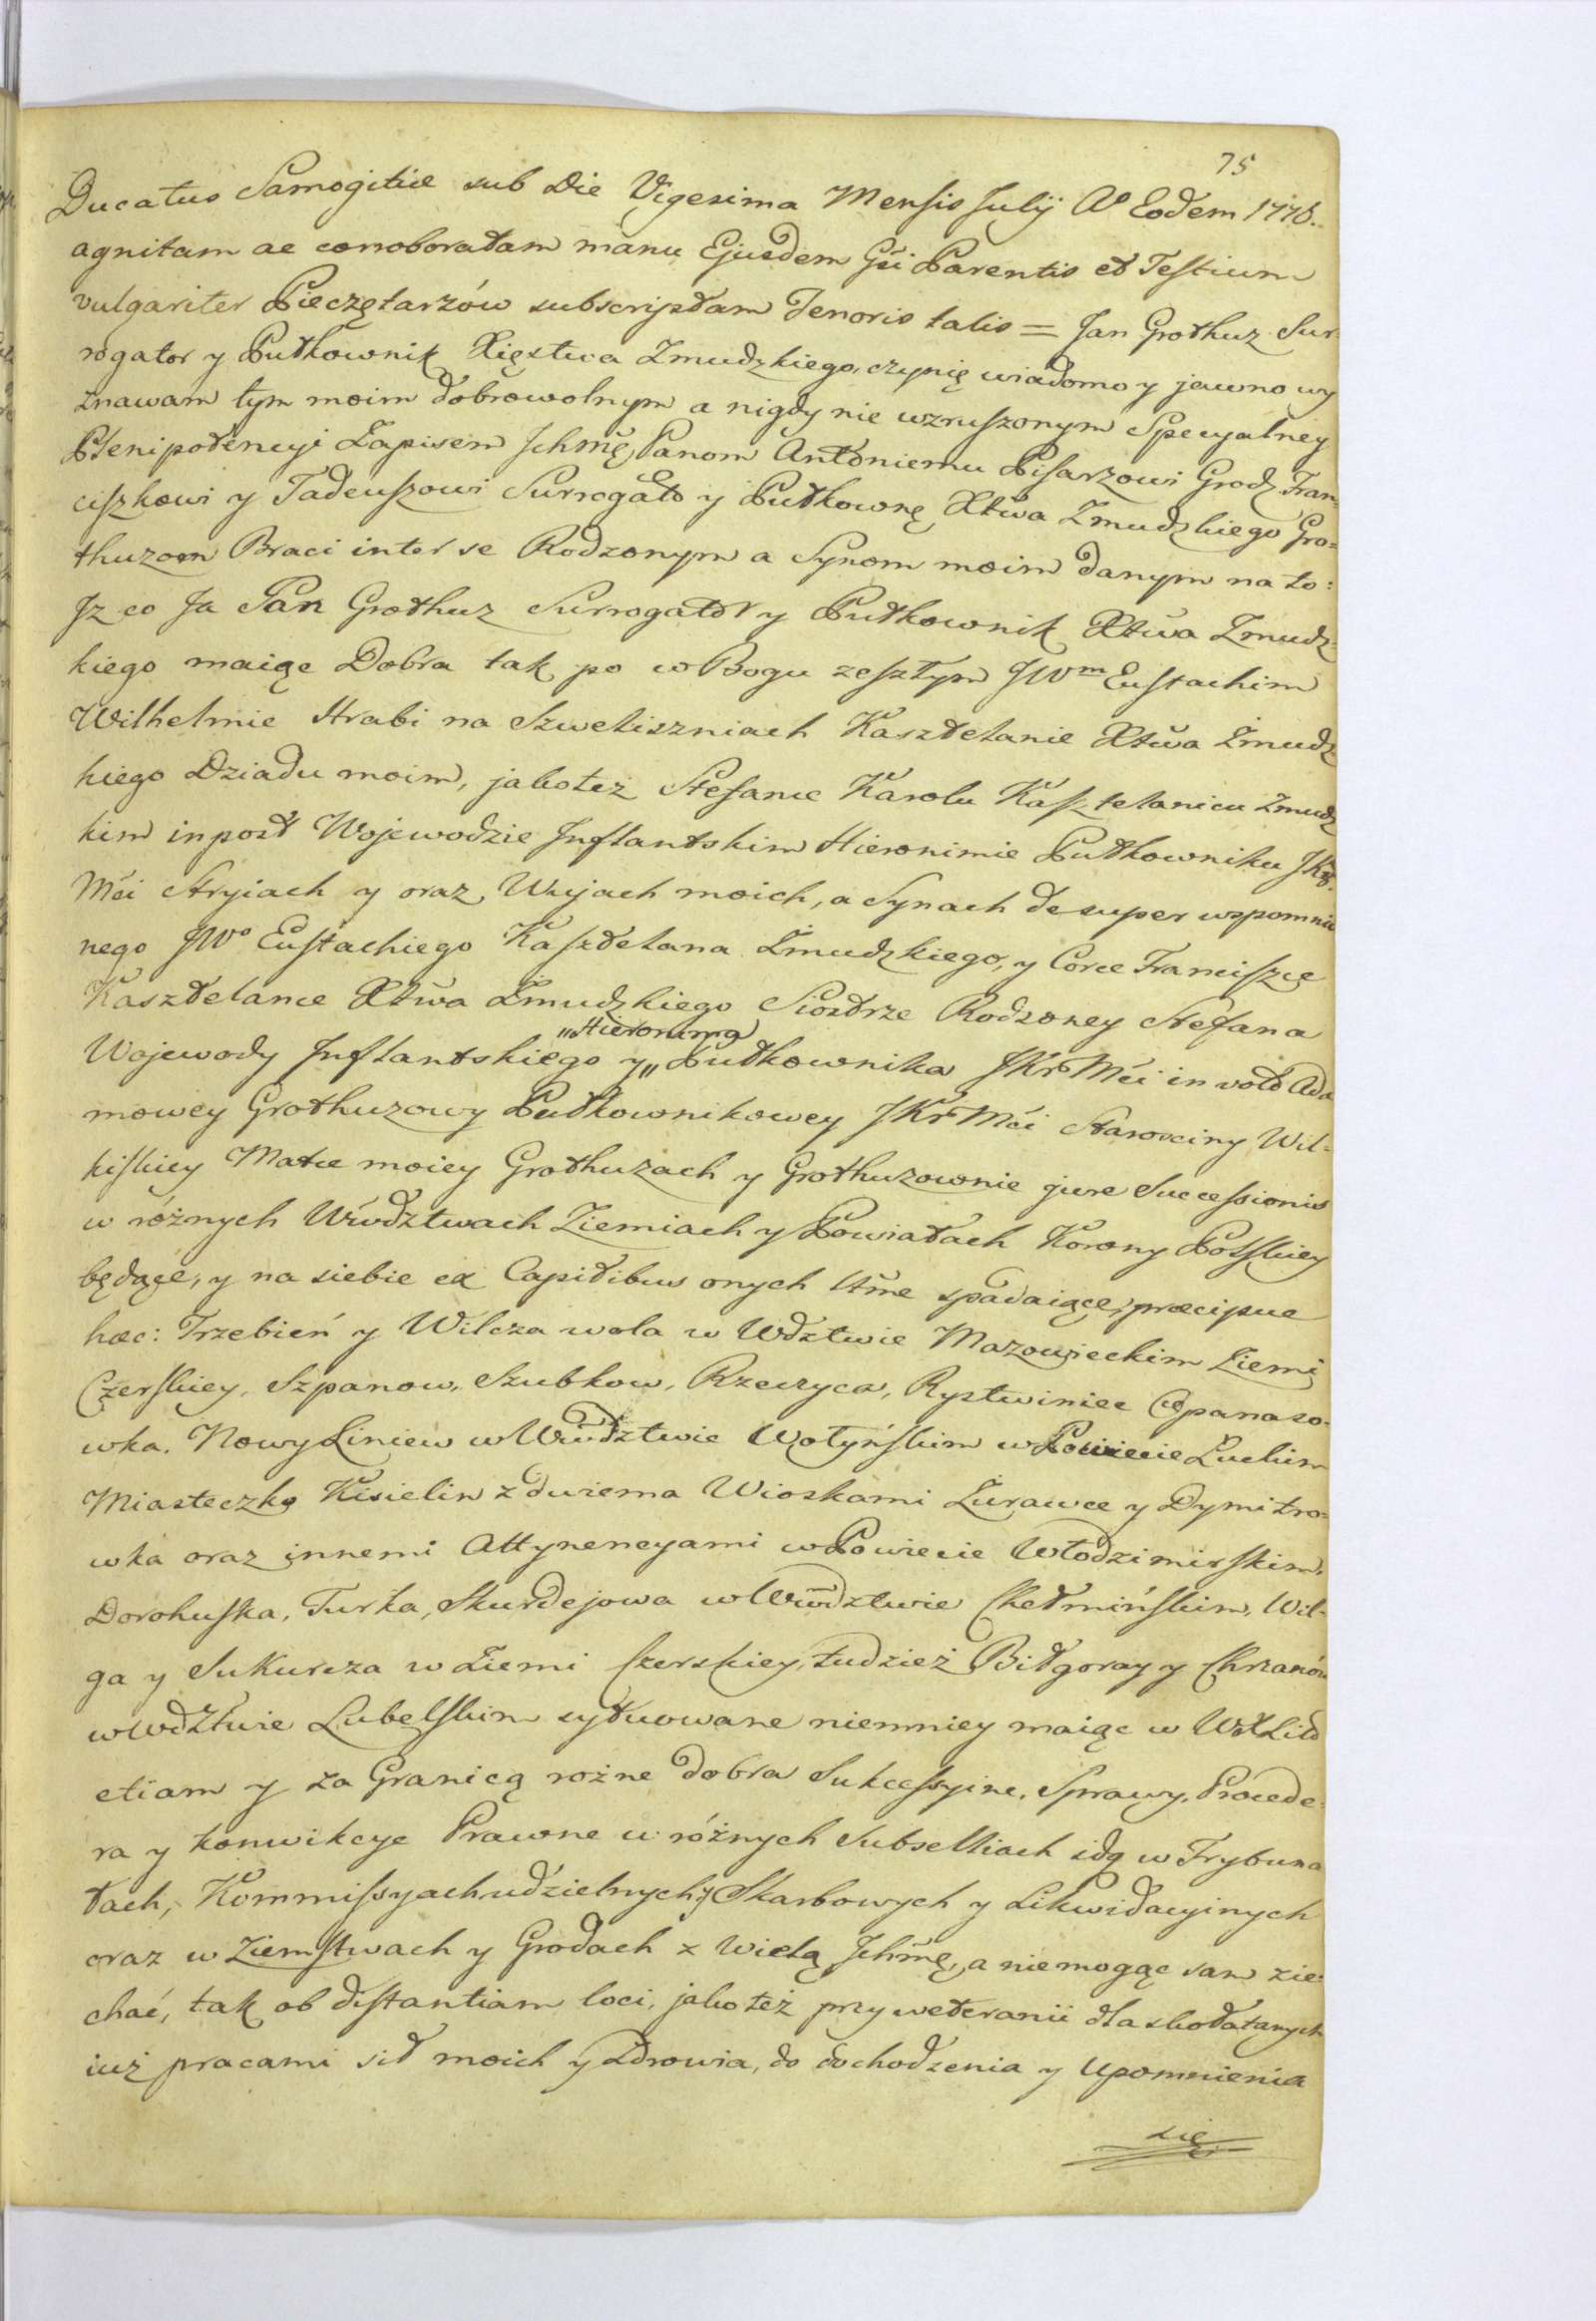 75
Ducatus Samogitiæ sub Die Vigesima Mensis Julÿ Aº Eodem 1778.
agnitam ac corroboratam manu Ejusdem Gsi Parentis et Testium
vulgariter Pieczętarzów subscriptam Tenoris talis = Jan Grothuz Sur
rogator y Pułkownik Xięstwa Zmudzkiego, czynię wiadomo y jawno wy
znawam tym moim dobrowolnym a nigdy nie wzruszonym Specyalney
Plenipotencyi Zapisem Ichmę Panom Antoniemu Pisarzowi Grodz. Fran=
ciszkowi y Tadeuszowi Surrogato y Pułkownę Xtwa Zmudzkiego Gro=
thuzom Braci inter se Rodzonym a Synom moim danym na to:
Iz co Ja Jan Grothuz Surrogator y Pułkownik Xtwa Zmudz
kiego maiąc Dobra tak po w Bogu zeszłym JWm Eustachim
Wilhelmie Hrabi na Szweliszniach Kasztelanie Xtwa Żmudz
kiego Dziadu moim, jako też Stefanie Karolu Kasztelanicu Zmudz
kim in post Wojewodzie Inflantskim Hieronimie Pułkowniku JKr.
Mći Stryiach y oraz Wujach moich, a Synach de super wspomnio
nego JWº Eustachiego Kasztelana Żmudzkiego, y Corce Franciszce
Kasztelance Xtwa Żmudzkiego Siostrze Rodzoney Stefana
Wojewody Inflantskiego y „Hieronima „ Pułkownika JKr Mći in voto Ada
mowey Grothuzowy Pułkownikowey JKr Mći Starosciny Wil=
kiskiey Matce moiey Grothuzach y Grothuzownie jure Successionis
w różnych Wwodztwach Ziemiach y Powiatach Korony Polskiey
będące, y na siebie ex Capitibus onych Ichme spadaiące, præcipue
hæc: Trzebień y Wilcza wola w Wdztwie Mazowieckim Ziemi
Czerskiey, Szpanow, Szubkow, Rzeczyca, Rystwiniec Czpanaso=
wka. Nowy Liniew w Wwodztwie Wołyńskim w Powiecie Łuckim
Miasteczko Kisielin z dwiema Wioskami Żurawce y Dymitro=
wka oraz innemi Attynencyami w Powiecie Włodzimirskim,
Dorohuska, Turka, Skurdejowa w Wwodztwie Chełmińskim, Wil=
ga y Sukurcza w Ziemi Czerskiey, tudzież Biłgoray y Chrzanów
w Wdztwie Lubelskim sytuowane niemniey maiąc w WXLitt
etiam y za Granicą rożne dobra Sukcessyine, Sprawy, Procede=
ra y konwikcye Prawne w różnych Subselliach idą w Trybuna
łach, Kommissyach udzielnych y Skarbowych y Likwidacyinych
oraz w Ziemstwach y Grodach z wielą Ichmę, a niemogąc sam zie=
chać, tak ob distantiam loci, jako też przy weteranii dla skołatanych
iuż pracami sił moich y Zdrowia, do dochodzenia y upomnienia
się